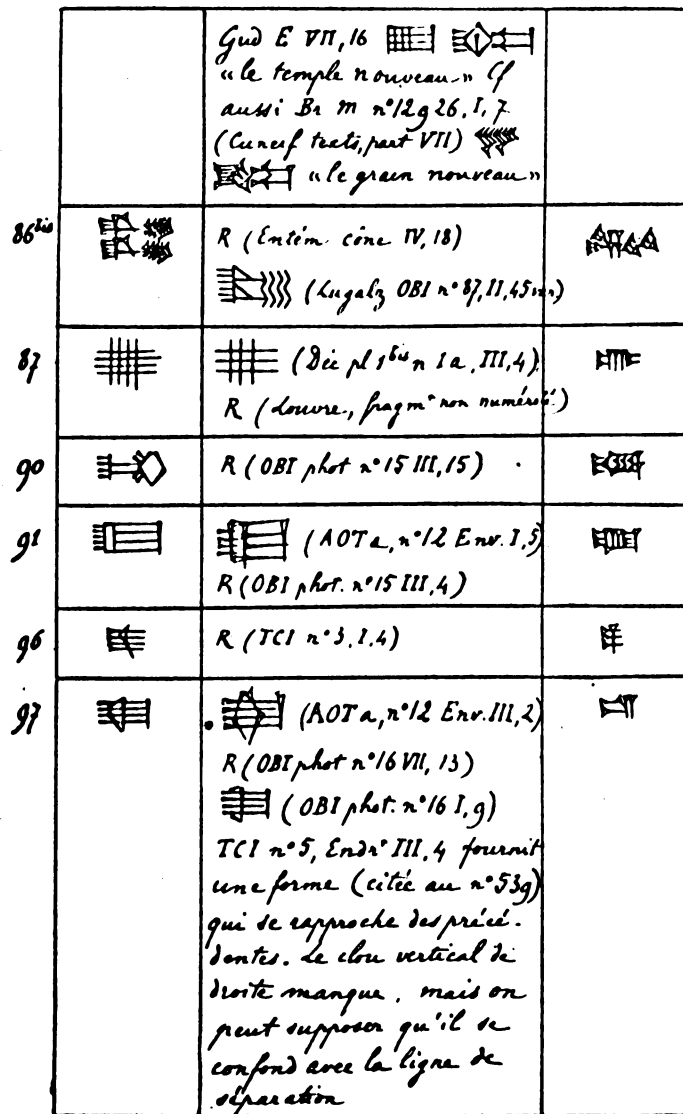 Gud E VII, 16
« le temple nouveau » Cf
aussi Br M n° 12926, I, 7
(Cuneif texts, part VII)
« le grain nouveau »
86 bis R (Entém. cône IV, 18)
(Lugalz OBI n° 87, II, 45 var)
87 (Déc pl 1 bis n 1 a, III, 4)
R (Louvre, fragmt non numéroté)
90 R (OBI phot n° 15 III, 15)
91 (AOTa, n° 12 Env. I, 5)
R (OBI phot. n° 15 III, 4)
96 R (TCI n° 3, I, 4)
97 (AOTa, n° 12 Env. III, 2)
R (OBI phot n° 16 VII, 13)
(OBI phot. n° 16 I, 9)
TCI n° 5, Endrt III, 4 fournit
une forme (citée au n° 539)
qui se rapproche des précé-
dentes. Le clou vertical de
droite manque, mais on
peut supposer qu'il se
confond avec la ligne de
séparation